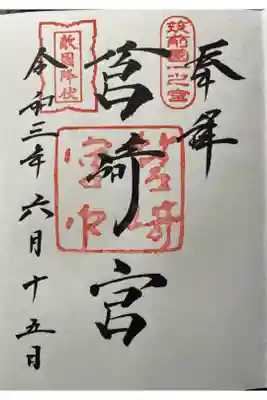 奉拝
筑前國一之宮
筥崎宮
敵国降伏
令和三年六月十五日